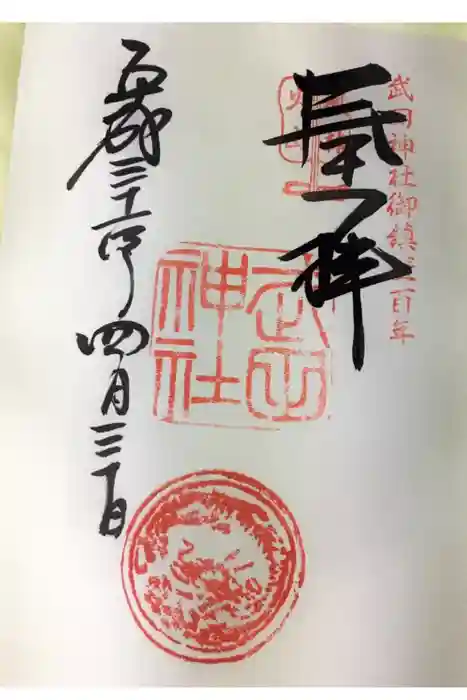 武田神社御鎮座百年
奉拝
武田神社
平成三十一年四月三十日